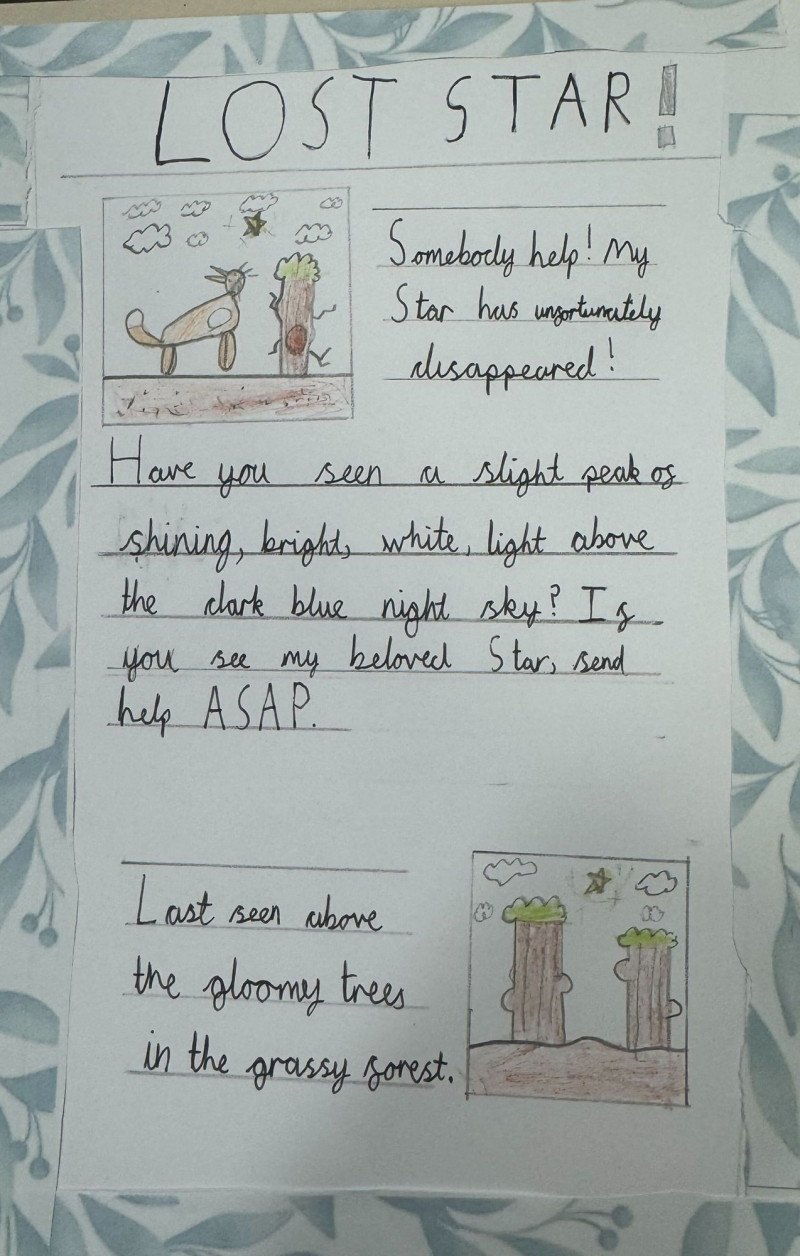 LOST STAR!
Somebody help! My
Star has unfortunately
disappeared!
Have you seen a slight peak of
shining, bright, white, light above
the dark blue night sky? If
you see my beloved Star, send
help ASAP.
Last seen above
the gloomy trees
in the grassy forest.